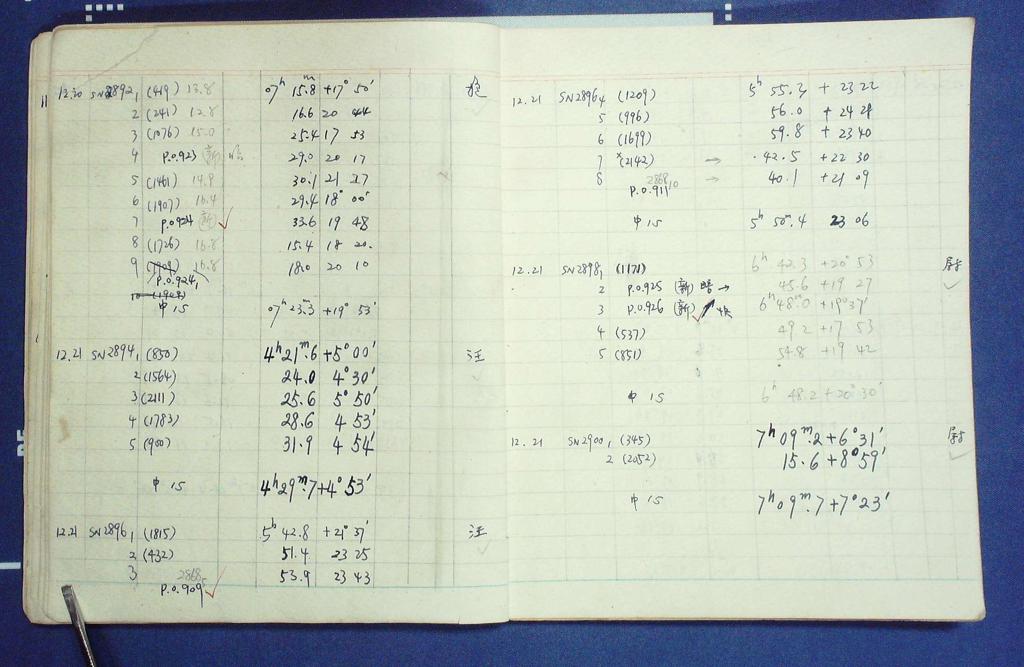 12.20 SN2892₁ (419) 13.8 07ʰ 15.8ᵐ +17° 50′
2 (241) 12.8 16.6 20 44
3 (1076) 15.0 25.4 17 53
4 P.O.923 (新) 暗 29.0 20 17
5 (1461) 14.9 30.1 21 27
6 (1907) 16.4 29.4 18° 00′
7 P.O.924 (新) ✓ 33.6 19 48
8 (1726) 16.8 15.4 18 20.
9 16.8 18.0 20 10
P.O.924₁
中 15 07ʰ 23.3ᵐ +19° 53′
12.21 SN2894₁ (850) 4ʰ 21ᵐ.6 +5° 00′ 汪
2 (1564) 24.0 4° 30′
3 (2111) 25.6 5° 50′
4 (1783) 28.6 4 53′
5 (900) 31.9 4 54′
中 15 4ʰ 29ᵐ.7 +4° 53′
12.21 SN2896₁ (1815) 5ʰ 42.8 +21° 37′ 汪
2 (432) 51.4 23 25
3 2868₅ 53.9 23 43
P.O.909 ✓
12.21 SN2896₄ (1209) 5ʰ 55.3 + 23 22
5 (996) 56.0 + 24 28
6 (1699) 59.8 + 23 40
7 *(2142) → 42.5 +22 30
8 2868₁₀ → 40.1 +21 09
P.O.911
中 15 5ʰ 50ᵐ.4 23 06
12.21 SN2898₁ (1171) 6ʰ 42.3 +20° 53
2 P.O.925 (新) 暗 → 45.6 +19 27
3 P.O.926 (新) ✓ 快 6ʰ 48ᵐ.0 +19° 37′
4 (537) 49.2 +17 53
5 (851) 54.8 +19 42
中 15 6ʰ 48.2 +20° 30′
12.21 SN2900₁ (345) 7ʰ 09ᵐ.2 +6° 31′
2 (2052) 15.6 +8° 59′
中 15 7ʰ 09ᵐ.7 +7° 23′